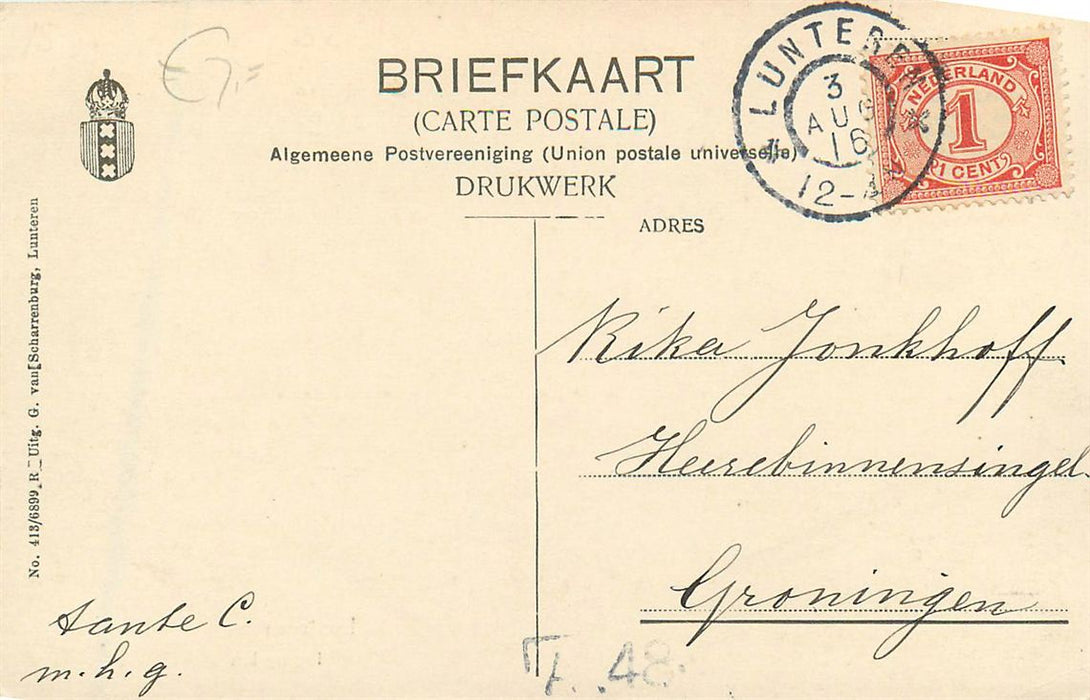 € 7,=
BRIEFKAART
(CARTE POSTALE)
Algemeene Postvereeniging (Union postale universelle)
DRUKWERK
ADRES
LUNTEREN
3
AUG
16
12-
NEDERLAND
1
1 CENT
No. 413/6899 R Uitg. G. van Scharrenburg, Lunteren
Rika Jonkhoff
Heerebinnensingel.
Groningen
tante C.
m.h.g.
48